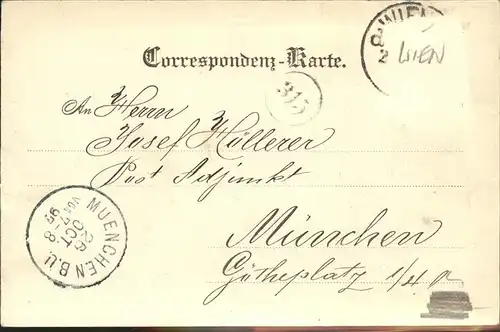 WIEN
8 2 WIEN
Correspondenz-Karte.
315
An Herrn
Josef Höllerer
Post Adjunkt
München
Götheplatz 1/4
MUENCHEN B.U.
26
OCT
7-8